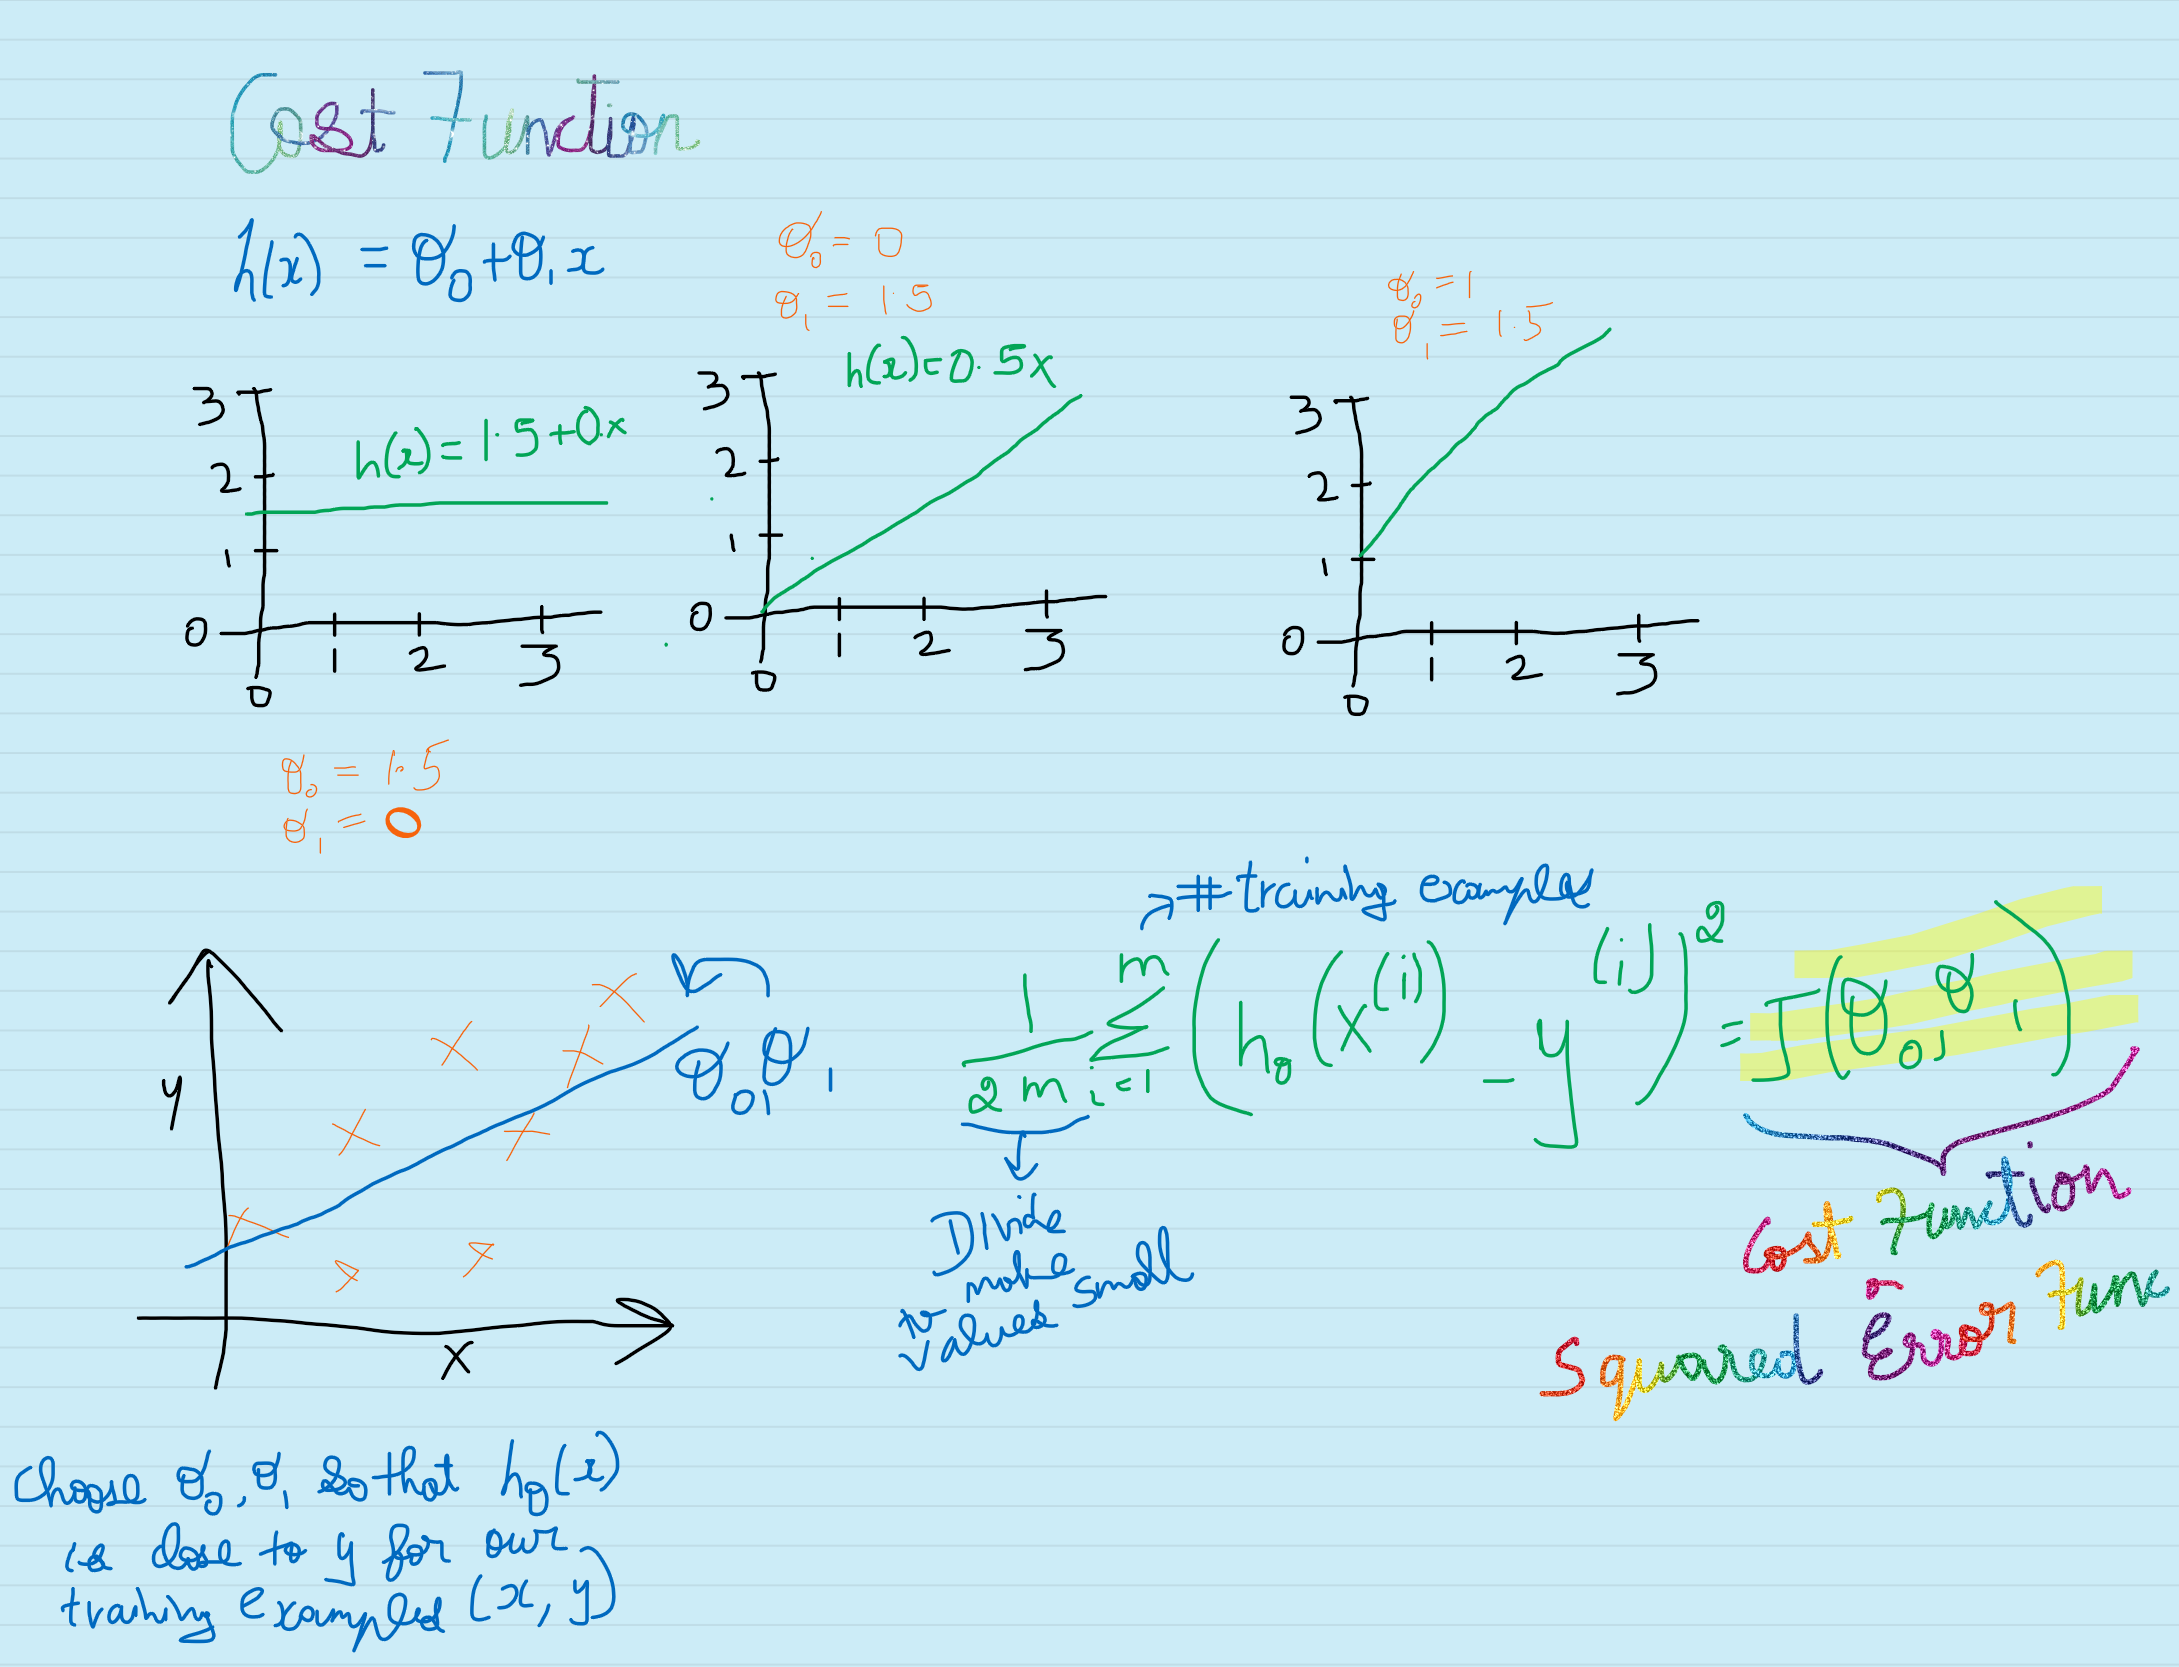 Cost Function
h(x) = θ₀+θ₁x
θ₀ = 0
θ₁ = 1.5
θ₀ = 1
θ₁ = 1.5
3
2
1
0
h(x) = 1.5+0.x
0 1 2 3
θ₀ = 1.5
θ₁ = 0
3
2
1
0
h(x) = 0.5x
0 1 2 3
3
2
1
0
0 1 2 3
y
x
θ₀,θ₁
→ # training examples
1/2m Σ i=1 m (hθ(x⁽ⁱ⁾) - y⁽ⁱ⁾)² = J(θ₀,θ₁)
Divide
to make small
values
Cost Function
or
Squared Error Func
Choose θ₀,θ₁ so that hθ(x)
is close to y for our
training examples (x,y)